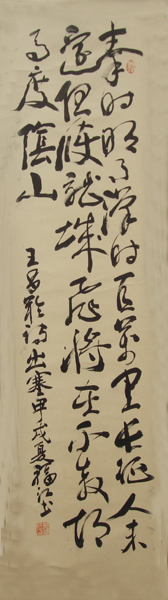 秦时明月汉时关万里长征人未
还但使龙城飞将在不教胡
马度阴山
王昌龄诗出塞甲戌夏